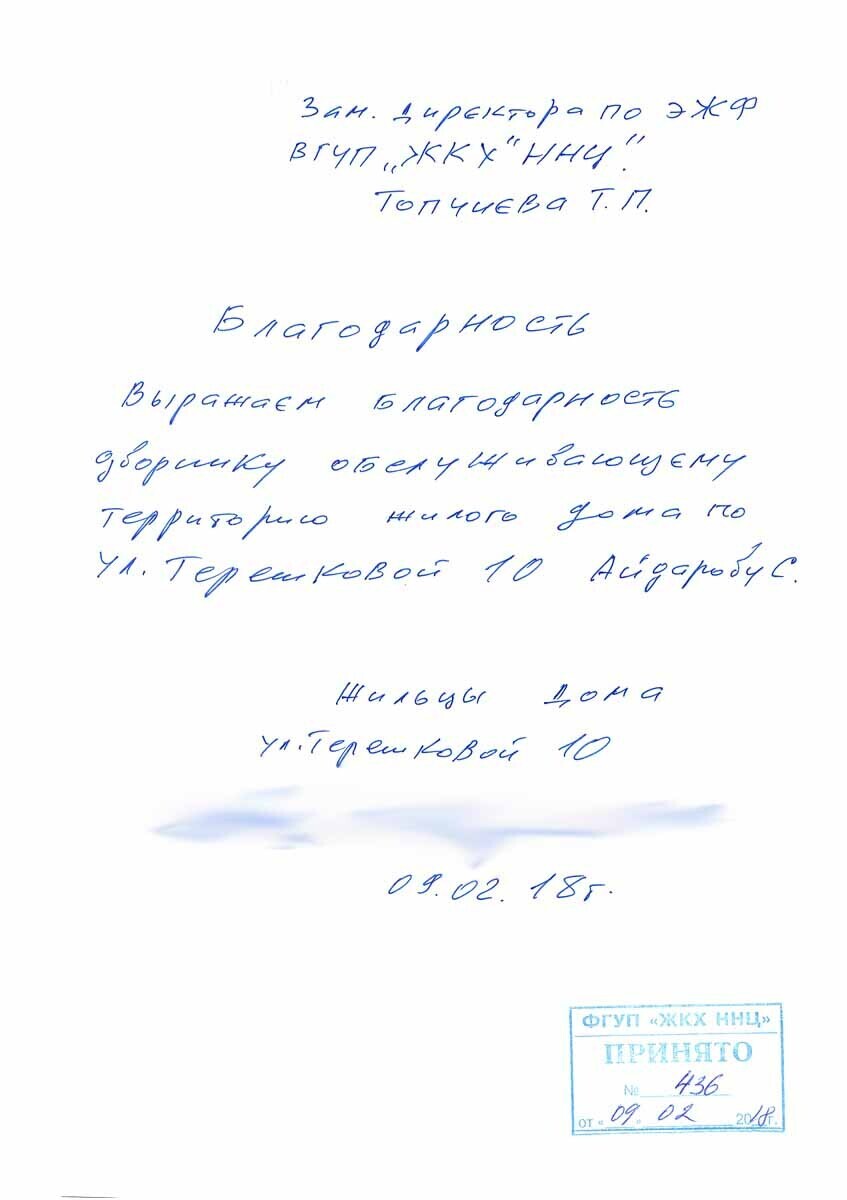 Зам. директора по ЭЖФ
ВГУП „ЖКХ" ННЦ".
Топчиева Т.П.
Благодарность
Выражаем благодарность
дворнику обслуживающему
территорию жилого дома по
ул. Терешковой 10 Айдаробу С.
Жильцы дома
ул. Терешковой 10
09.02.18г.
ФГУП «ЖКХ ННЦ»
ПРИНЯТО
№ 436
от «09» 02 2018г.